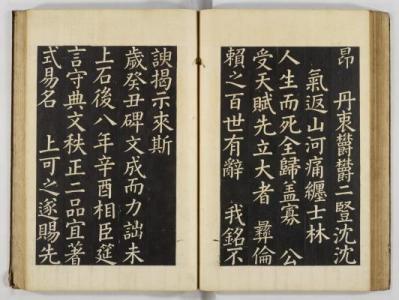 昂 丹衷欝欝二豎沈沈
氣返山河痛纏士林
人生而死全歸盖寡 公
受天賦先立大者 彛倫
賴之百世有辭 我銘不
諛揭示來斯
歲癸丑碑文成而力詘未
上石後八年辛酉相臣筵
言守典文秩正二品宜著
式易名 上可之遂賜先